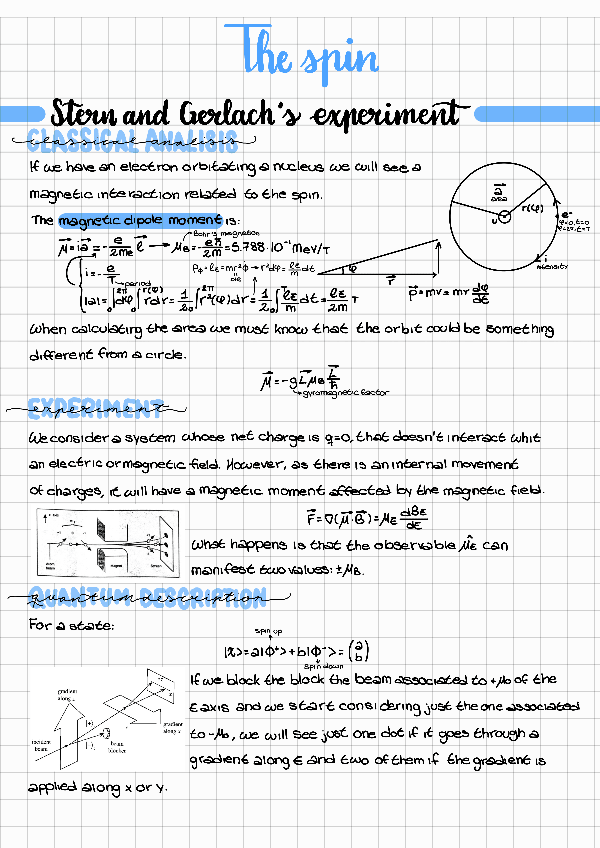 The spin
Stern and Gerlach's experiment
CLASSICAL ANALISIS
If we have an electron orbitating a nucleus we will see a
magnetic interaction related to the spin.
The magnetic dipole moment is:
Bohr's magnetation
μ⃗ = ia⃗ = -e/2me ℓ⃗ → μB = -eħ/2m = 5.788·10⁻¹¹ MeV/T
i = -e/T
period
Pφ = ℓz = mr²φ̇ → r²dφ = ℓz/m dt
|a⃗| = ∫₀^2π dφ ∫₀^r(φ) r dr = 1/2 ∫₀^2π r²(φ)dr = 1/2 ∫₀^T ℓz/m dt = ℓz/2m T
φ
r⃗
a⃗
area
r(φ)
e⁻
φ=0, t=0
φ=2π, t=T
i
intensity
p⃗ = mv = mr dφ/dt
When calculating the area we must know that the orbit could be something
different from a circle.
μ⃗ = -gL⃗ μB L⃗/ħ
gyromagnetic factor
experiment
We consider a system whose net charge is q=0, that doesn't interact whit
an electric or magnetic field. However, as there is an internal movement
of charges, it will have a magnetic moment affected by the magnetic field.
F⃗ = ∇(μ⃗·B⃗) = μz dBz/dz
magnet
screen
What happens is that the observable μ̂z can
manifest two values: ±μB.
QUANTUM DESCRIPTION
For a state:
spin up
|χ> = a|Φ⁺> + b|Φ⁻> = (a b)
spin down
gradient
along z
|+⟩
|-⟩
incident
beam
beam
blocker
gradient
along x
If we block the block the beam associated to +μb of the
z axis and we start considering just the one associated
to -μb, we will see just one dot if it goes through a
gradient along z and two of them if the gradient is
applied along x or y.